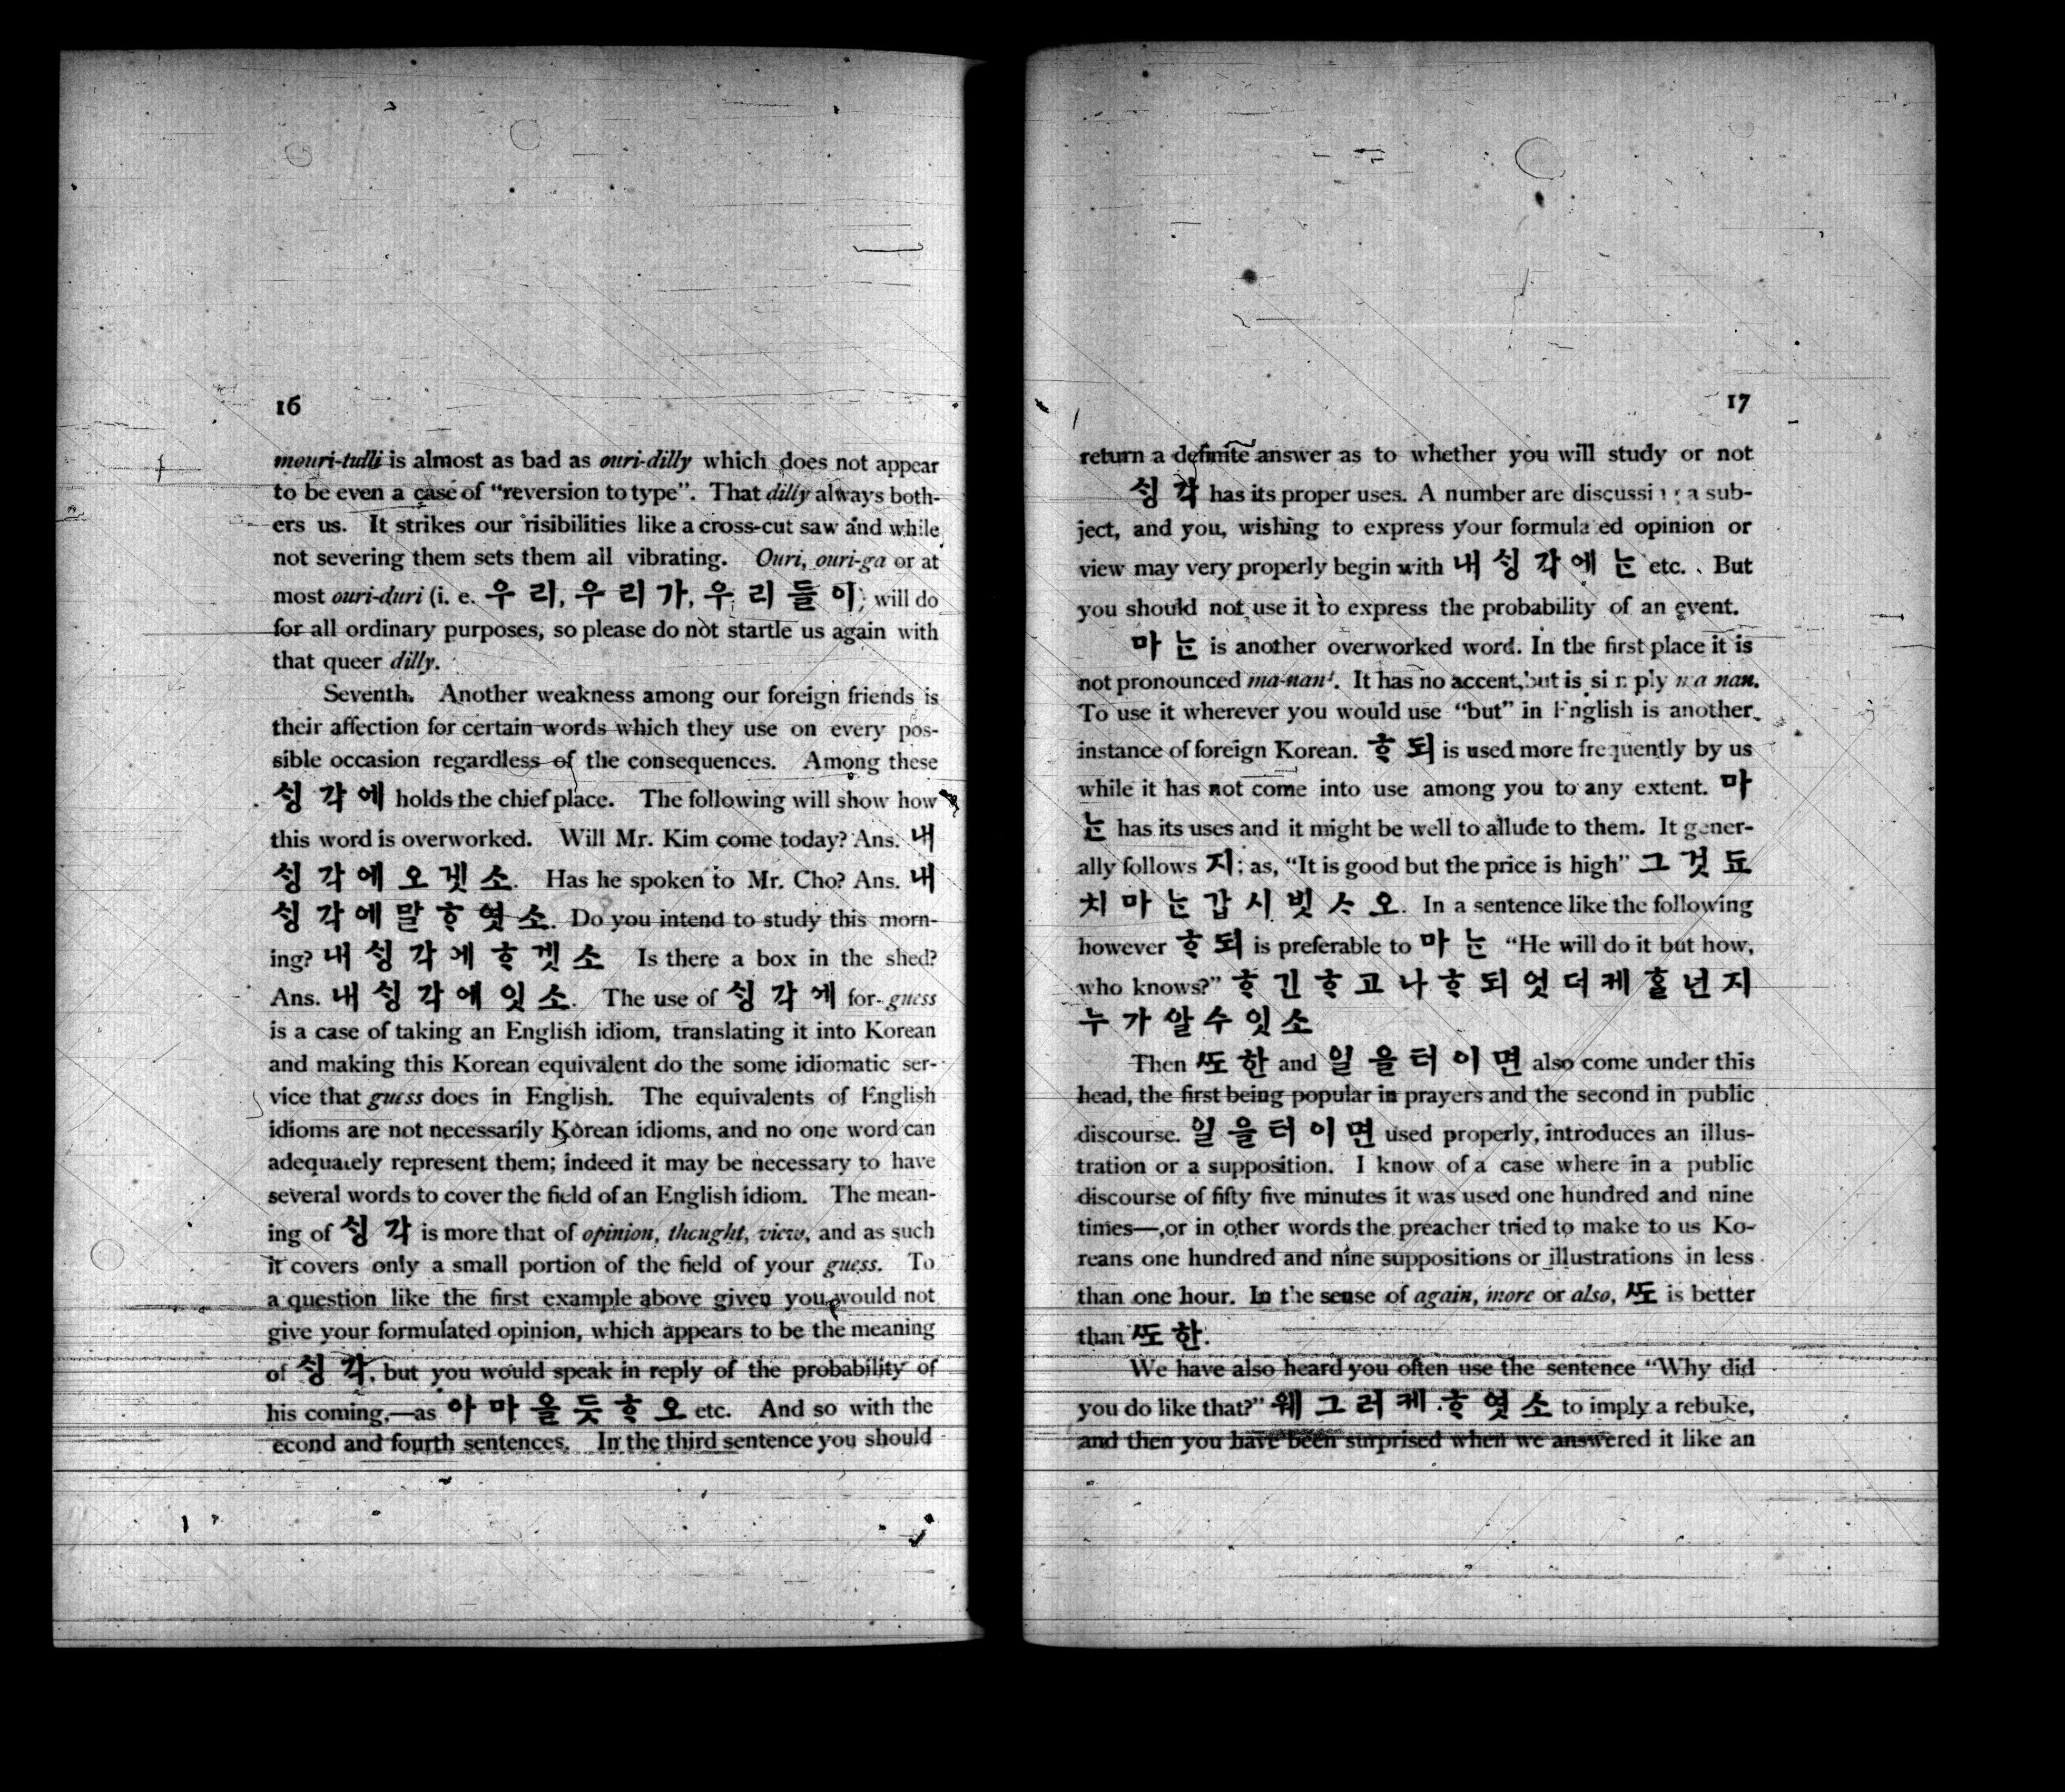 16
mouri-tulli is almost as bad as ouri-dilly which does not appear
to be even a case of “reversion to type”. That dilly always both-
ers us. It strikes our risibilities like a cross-cut saw and while
not severing them sets them all vibrating. Ouri, ouri-ga or at
most ouri-duri (i. e. 우리, 우리가, 우리들이; will do
for all ordinary purposes, so please do not startle us again with
that queer dilly.
Seventh. Another weakness among our foreign friends is
their affection for certain words which they use on every pos-
sible occasion regardless of the consequences. Among these
ᄉᆡᆼ각에 holds the chief place. The following will show how
this word is overworked. Will Mr. Kim come today? Ans. 내
ᄉᆡᆼ각에오겟소. Has he spoken to Mr. Cho? Ans. 내
ᄉᆡᆼ각에말ᄒᆞ엿소. Do you intend to study this morn-
ing? 내ᄉᆡᆼ각에ᄒᆞ겟소 Is there a box in the shed?
Ans. 내ᄉᆡᆼ각에잇소. The use of ᄉᆡᆼ각에 for guess
is a case of taking an English idiom, translating it into Korean
and making this Korean equivalent do the some idiomatic ser-
vice that guess does in English. The equivalents of English
idioms are not necessarily Korean idioms, and no one word can
adequately represent them; indeed it may be necessary to have
several words to cover the field of an English idiom. The mean-
ing of ᄉᆡᆼ각 is more that of opinion, thought, view, and as such
it covers only a small portion of the field of your guess. To
a question like the first example above given you would not
give your formulated opinion, which appears to be the meaning
of ᄉᆡᆼ각, but you would speak in reply of the probability of
his coming,—as 아마올듯ᄒᆞ오 etc. And so with the
econd and fourth sentences. In the third sentence you should
17
return a definite answer as to whether you will study or not
ᄉᆡᆼ각 has its proper uses. A number are discussing a sub-
ject, and you, wishing to express your formulated opinion or
view may very properly begin with 내ᄉᆡᆼ각에ᄂᆞᆫ etc. But
you should not use it to express the probability of an event.
마ᄂᆞᆫ is another overworked word. In the first place it is
not pronounced ma-nan'. It has no accent, but is simply ma nan.
To use it wherever you would use “but” in English is another
instance of foreign Korean. ᄒᆞ되 is used more frequently by us
while it has not come into use among you to any extent. 마
ᄂᆞᆫ has its uses and it might be well to allude to them. It gener-
ally follows 지; as, “It is good but the price is high” 그것됴
치마ᄂᆞᆫ갑시빗ᄉᆞ오. In a sentence like the following
however ᄒᆞ되 is preferable to 마ᄂᆞᆫ “He will do it but how,
who knows?” ᄒᆞ긴ᄒᆞ고나ᄒᆞ되엇더케ᄒᆞᆯ넌지
누가알수잇소
Then ᄯᅩ한 and 일을터이면 also come under this
head, the first being popular in prayers and the second in public
discourse. 일을터이면 used properly, introduces an illus-
tration or a supposition. I know of a case where in a public
discourse of fifty five minutes it was used one hundred and nine
times—,or in other words the preacher tried to make to us Ko-
reans one hundred and nine suppositions or illustrations in less
than one hour. In the sense of again, more or also, ᄯᅩ is better
than ᄯᅩ한.
We have also heard you often use the sentence “Why did
you do like that?” 웨그러케ᄒᆞ엿소 to imply a rebuke,
and then you have been surprised when we answered it like an